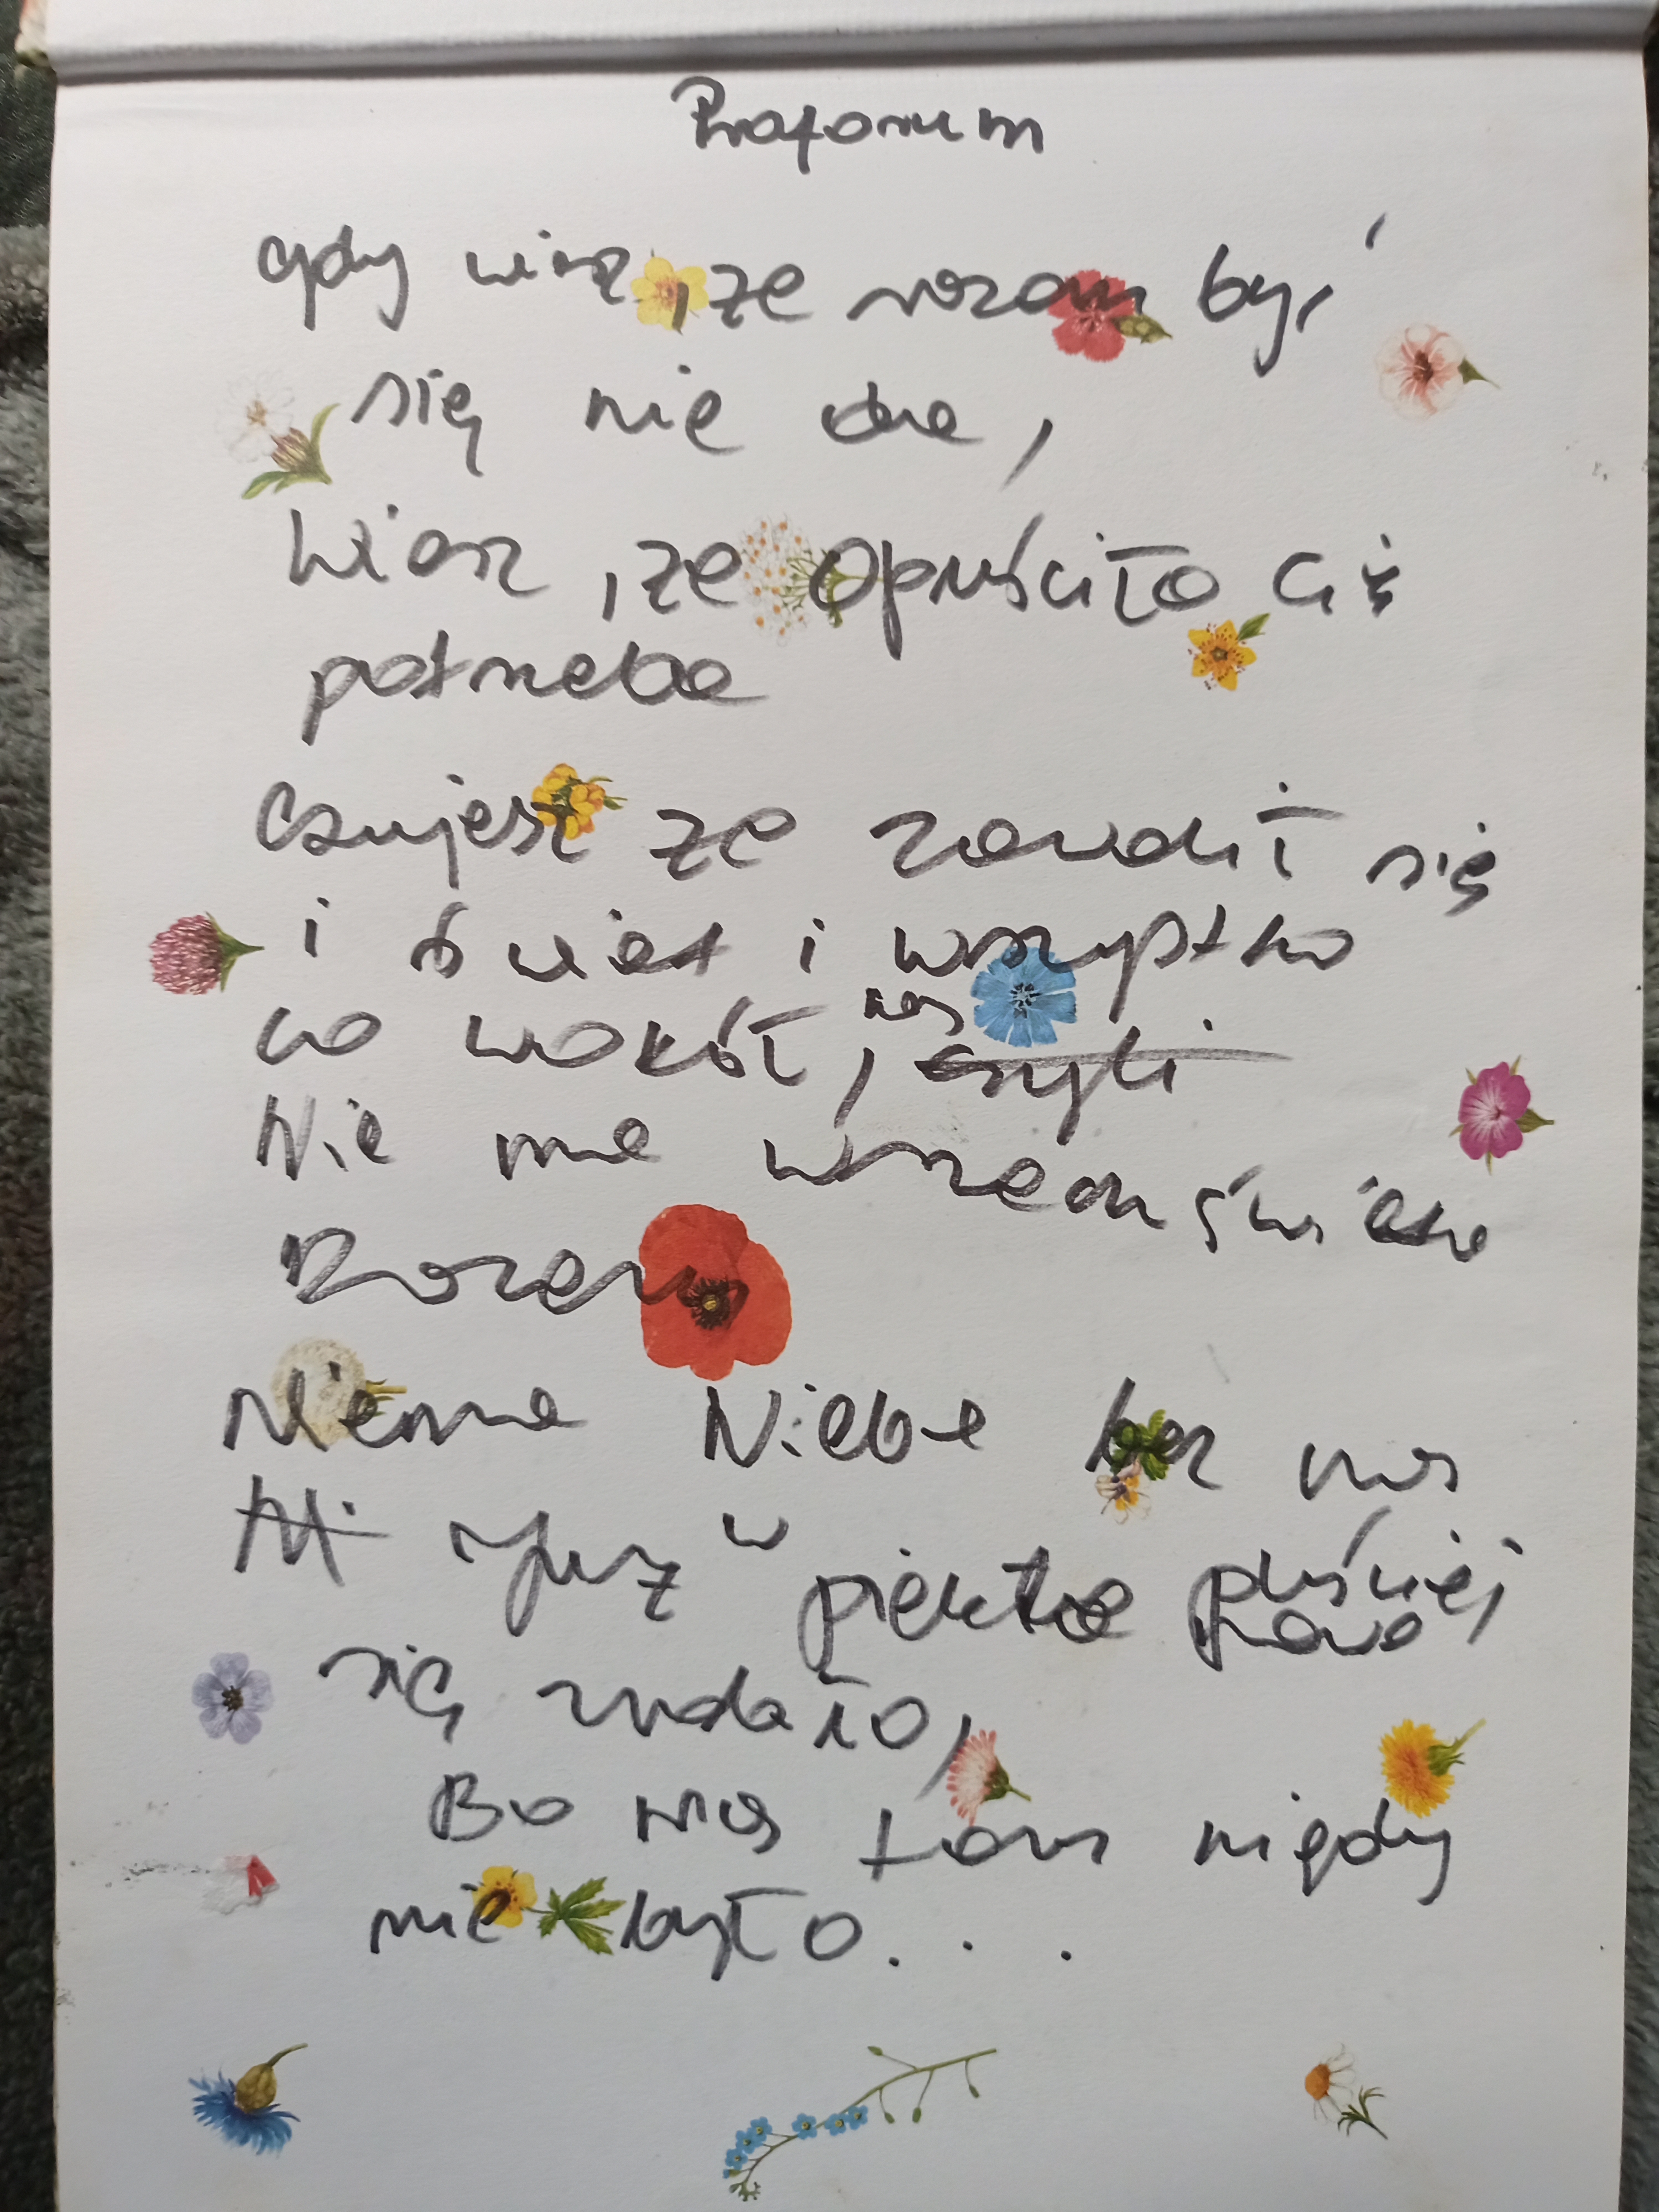 gdy wiesz, że razem być
się nie da,
Wiesz, że opuściło Cię
potrzeba
Czujesz że zawalił się
i świat i wszystko
co wokół, nas
Nie ma wszechświata
Razem
Niema Nieba bez nas
już w piekle puściej
się zrobiło,
Bo nas tam nigdy
nie było...